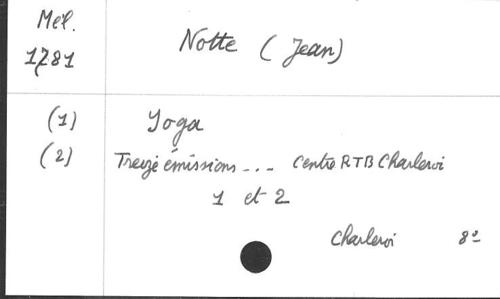 Mél.
1781
Notte (Jean)
(1) Yoga
(2) Treize émissions... Centre RTB Charleroi
1 et 2
Charleroi 8°